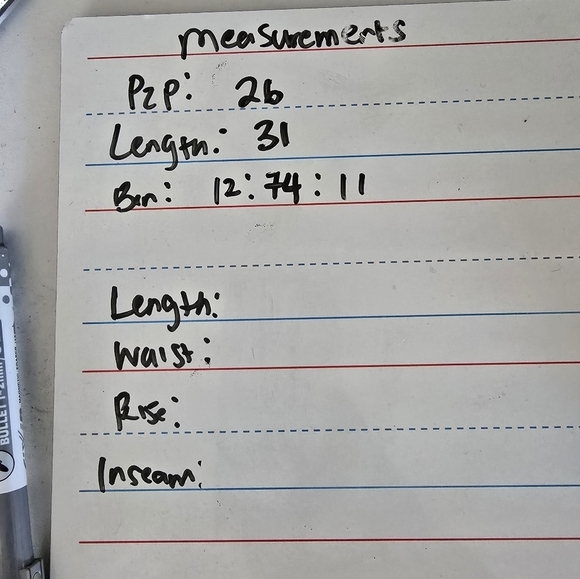 measurements
P2P: 26
Length: 31
Bin: 12:74:11
Length:
Waist:
Rise:
Inseam:
BULLET 1-2mm/